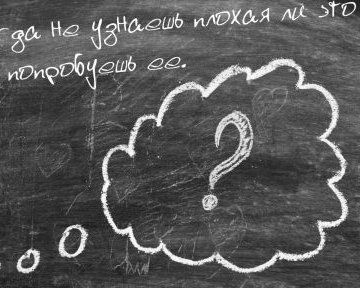 да не узнаешь плохая ли это
попробуешь ее.
?